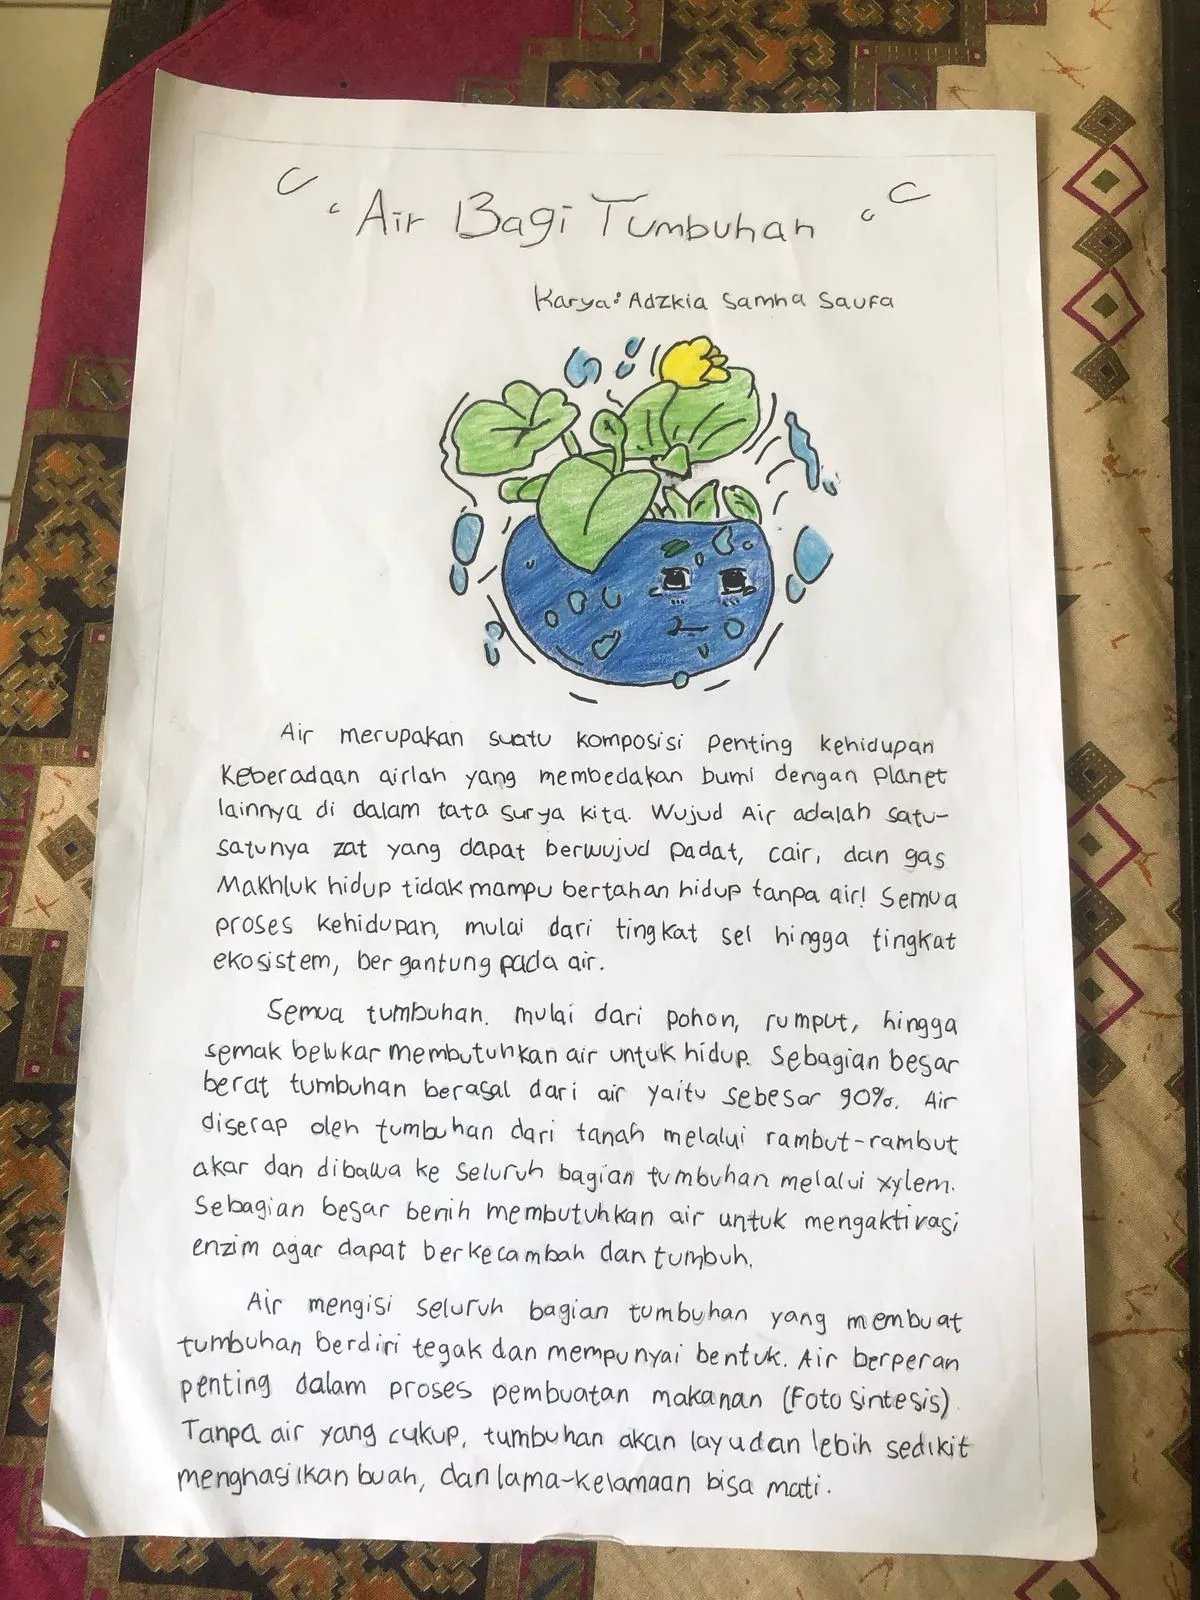 Air Bagi Tumbuhan
Karya: Adzkia Samha Saufa
Air merupakan suatu komposisi penting kehidupan
Keberadaan airlah yang membedakan bumi dengan planet
lainnya di dalam tata surya kita. Wujud Air adalah satu-
satunya zat yang dapat berwujud padat, cair, dan gas
Makhluk hidup tidak mampu bertahan hidup tanpa air! Semua
proses kehidupan, mulai dari tingkat sel hingga tingkat
ekosistem, bergantung pada air.
Semua tumbuhan. mulai dari pohon, rumput, hingga
semak belukar membutuhkan air untuk hidup. Sebagian besar
berat tumbuhan berasal dari air yaitu sebesar 90%. Air
diserap oleh tumbuhan dari tanah melalui rambut-rambut
akar dan dibawa ke seluruh bagian tumbuhan melalui xylem.
Sebagian besar benih membutuhkan air untuk mengaktivasi
enzim agar dapat berkecambah dan tumbuh.
Air mengisi seluruh bagian tumbuhan yang membuat
tumbuhan berdiri tegak dan mempunyai bentuk. Air berperan
penting dalam proses pembuatan makanan (Fotosintesis).
Tanpa air yang cukup, tumbuhan akan layu dan lebih sedikit
menghasilkan buah, dan lama-kelamaan bisa mati.